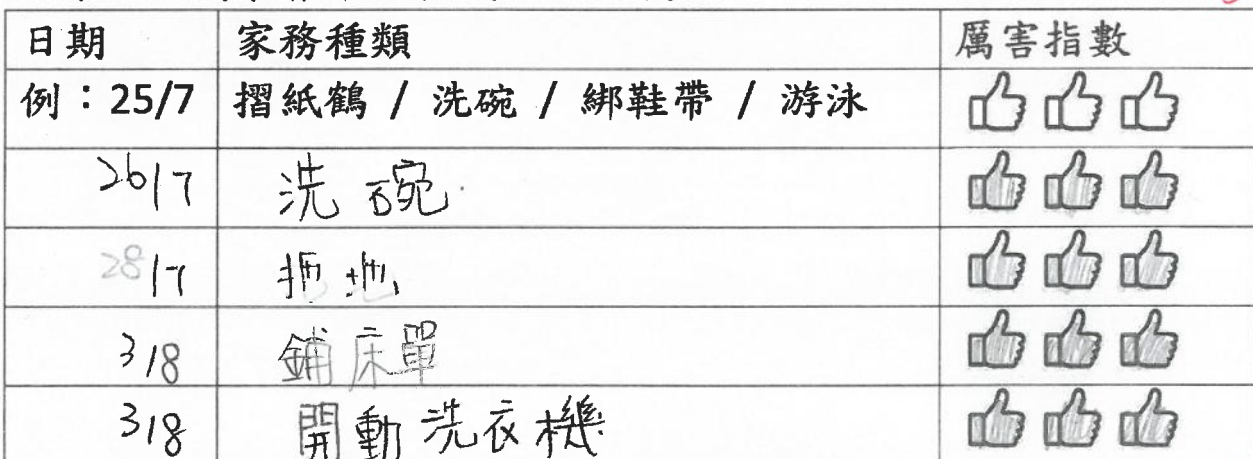 日期 家務種類 厲害指數
例：25/7 摺紙鶴 / 洗碗 / 綁鞋帶 / 游泳
26/7 洗碗
28/7 拖地
3/8 鋪床單
3/8 開動洗衣機